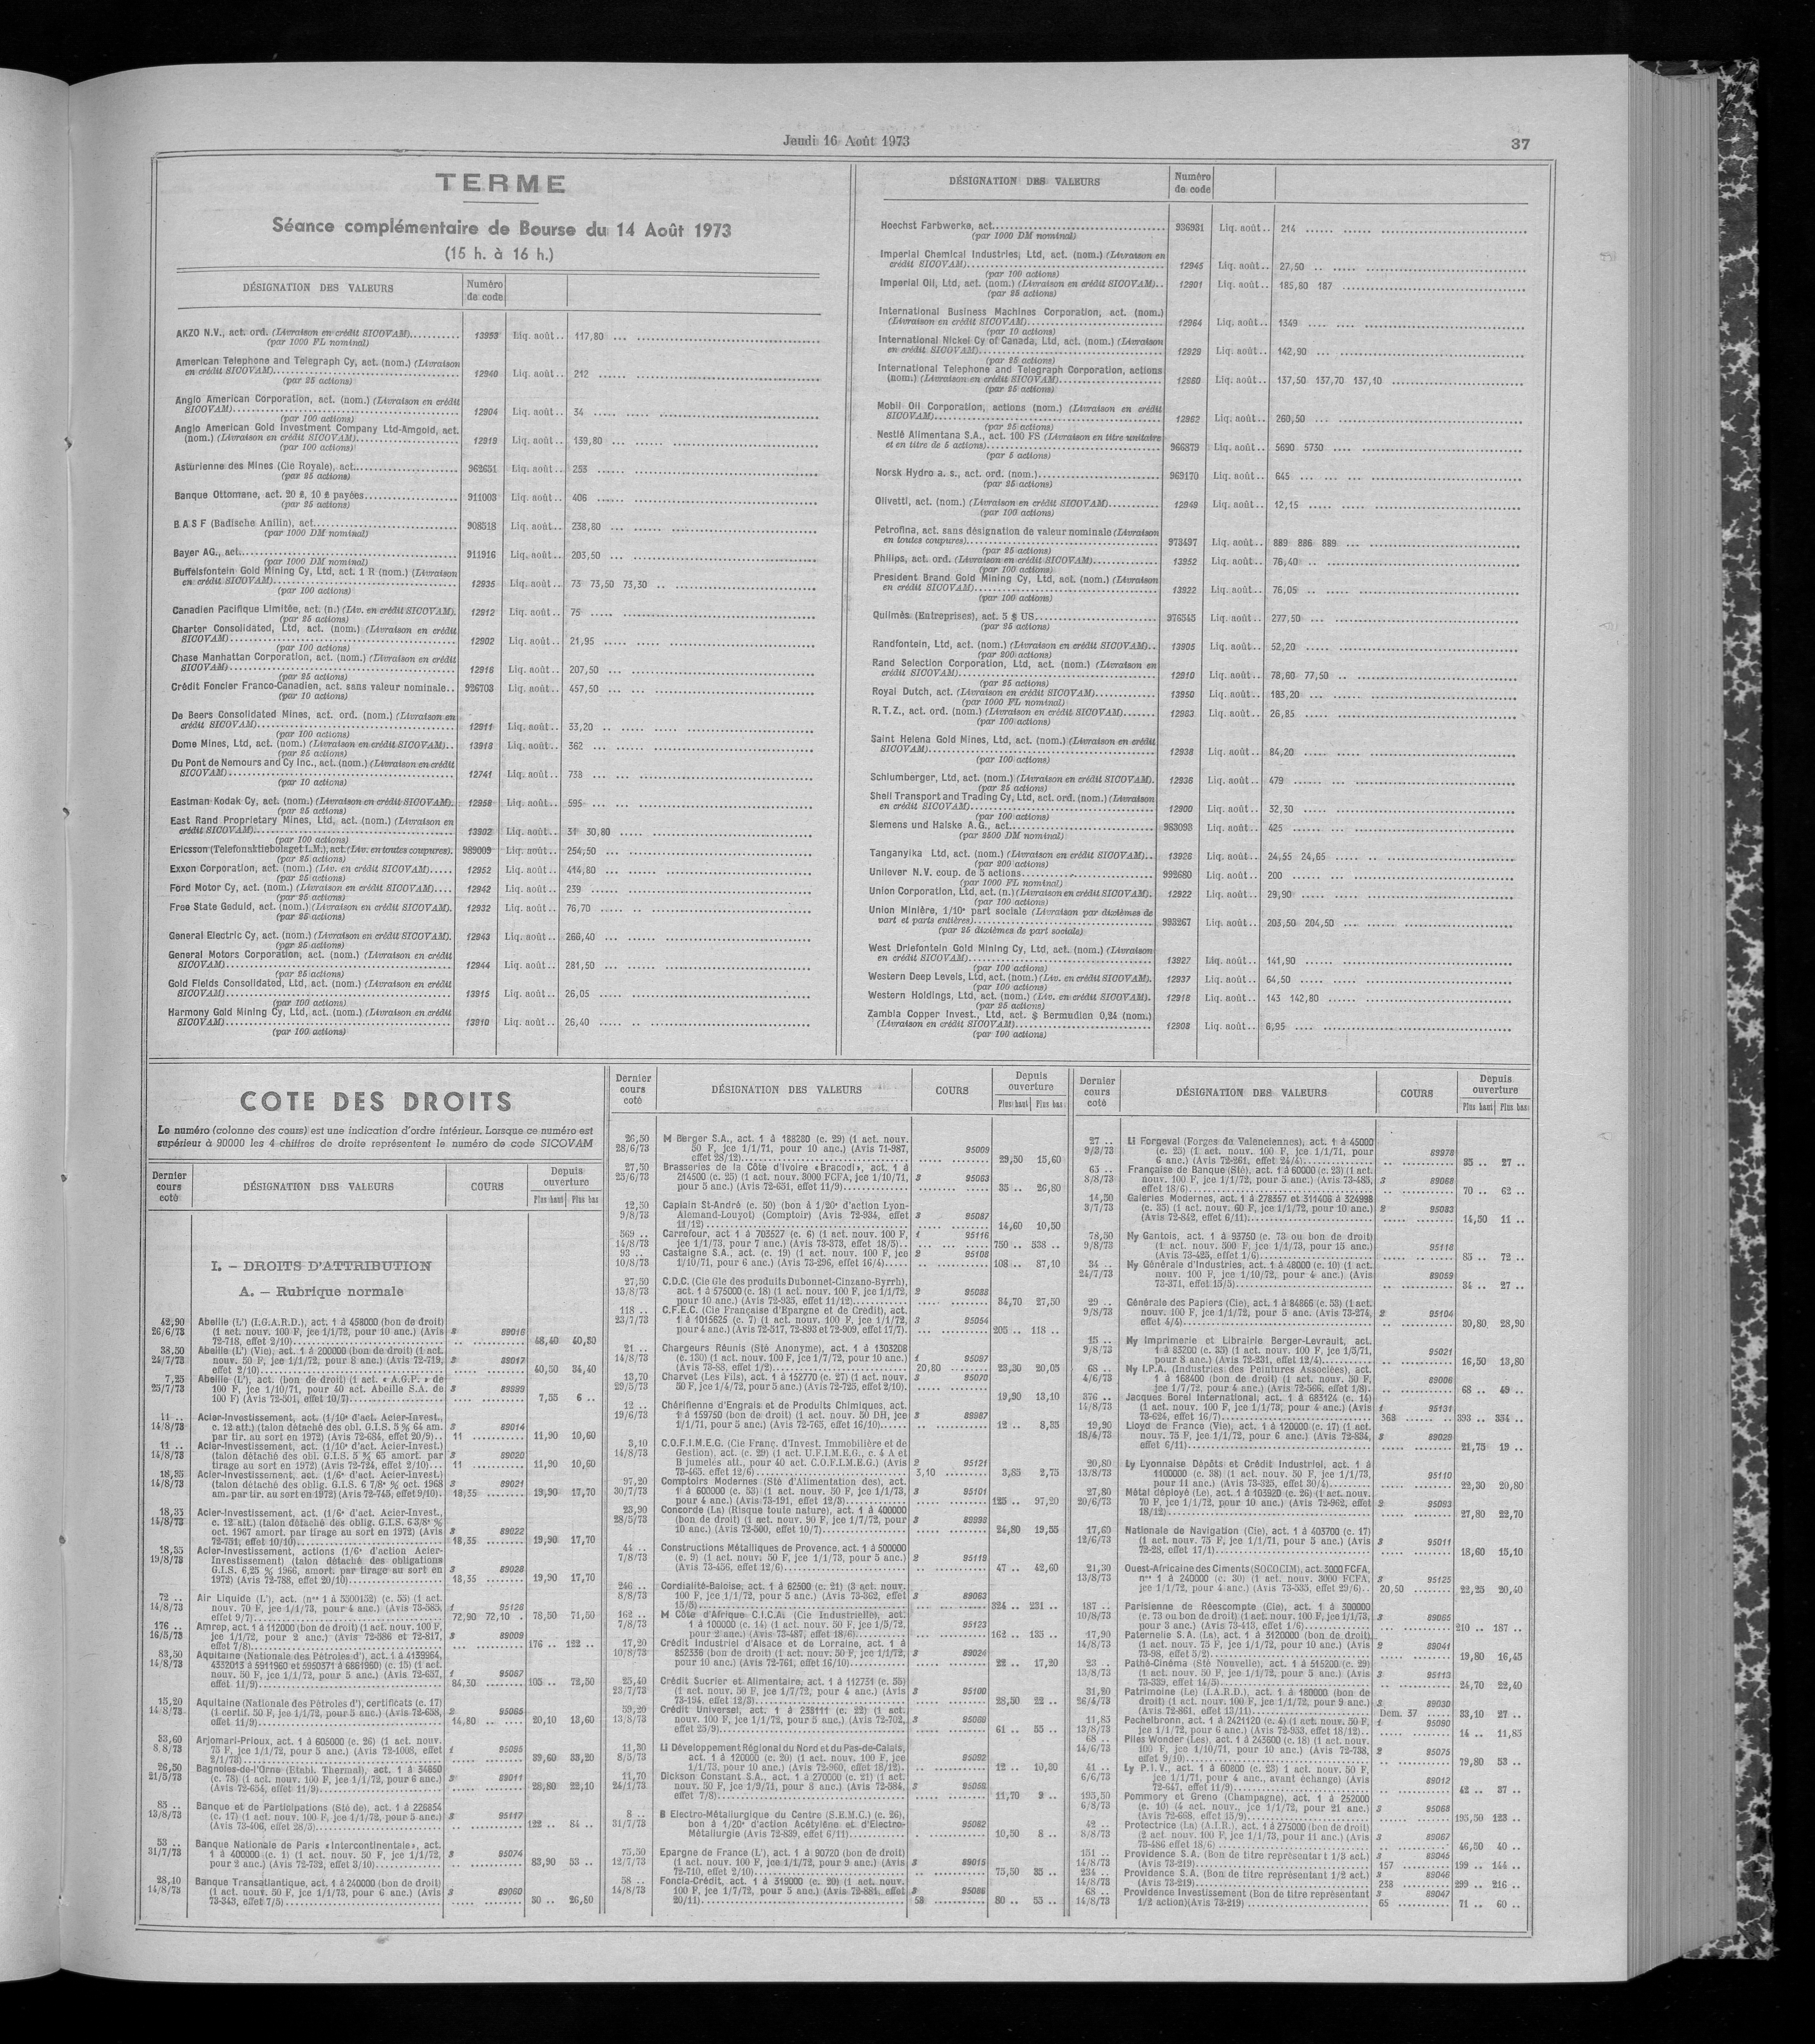 Jeudi 16 Août 1973
37
TERME
Séance complémentaire de Bourse du 14 Août 1973
(15 h. à 16 h.)
DÉSIGNATION DES VALEURS
Numéro
de code
AKZO N.V., act. ord. (Livraison en crédit SICOVAM) 13953 Liq. août.. 117,80
(par 1000 FL nominal)
American Telephone and Telegraph Cy, act. (nom.) (Livraison
en crédit SICOVAM) 12940 Liq. août.. 212
(par 25 actions)
Anglo American Corporation, act. (nom.) (Livraison en crédit
SICOVAM) 12904 Liq. août.. 34
(par 100 actions)
Anglo American Gold Investment Company Ltd-Amgold, act.
(nom.) (Livraison en crédit SICOVAM) 12919 Liq. août.. 139,80
(par 100 actions)
Asturienne des Mines (Cie Royale), act. 962651 Liq. août.. 253
(par 25 actions)
Banque Ottomane, act. 20 £, 10 £ payées 911003 Liq. août.. 406
(par 25 actions)
B A S F (Badische Anilin), act. 908518 Liq. août.. 238,80
(par 1000 DM nominal)
Bayer AG., act. 911916 Liq. août.. 203,50
(par 1000 DM nominal)
Buffelsfontein Gold Mining Cy, Ltd, act. 1 R (nom.) (Livraison
en crédit SICOVAM) 12935 Liq. août.. 73 73,50 73,30
(par 100 actions)
Canadien Pacifique Limitée, act. (n.) (Liv. en crédit SICOVAM). 12912 Liq. août.. 75
(par 25 actions)
Charter Consolidated, Ltd, act. (nom.) (Livraison en crédit
SICOVAM) 12902 Liq. août.. 21,95
(par 100 actions)
Chase Manhattan Corporation, act. (nom.) (Livraison en crédit
SICOVAM) 12916 Liq. août.. 207,50
(par 25 actions)
Crédit Foncier Franco-Canadien, act. sans valeur nominale.. 926703 Liq. août.. 457,50
(par 10 actions)
De Beers Consolidated Mines, act. ord. (nom.) (Livraison en
crédit SICOVAM) 12911 Liq. août.. 33,20
(par 100 actions)
Dome Mines, Ltd, act. (nom.) (Livraison en crédit SICOVAM).. 13918 Liq. août.. 362
(par 25 actions)
Du Pont de Nemours and Cy Inc., act. (nom.) (Livraison en crédit
SICOVAM) 12741 Liq. août.. 738
(par 10 actions)
Eastman Kodak Cy, act. (nom.) (Livraison en crédit SICOVAM). 12958 Liq. août.. 595
(par 25 actions)
East Rand Proprietary Mines, Ltd, act. (nom.) (Livraison en
crédit SICOVAM) 13902 Liq. août.. 31 30,80
(par 100 actions)
Ericsson (Telefonaktiebolaget L.M.), act. (Liv. en toutes coupures). 989009 Liq. août.. 254,50
(par 25 actions)
Exxon Corporation, act. (nom.) (Liv. en crédit SICOVAM) 12952 Liq. août.. 414,80
(par 25 actions)
Ford Motor Cy, act. (nom.) (Livraison en crédit SICOVAM) 12942 Liq. août.. 239
(par 25 actions)
Free State Geduld, act. (nom.) (Livraison en crédit SICOVAM). 12932 Liq. août.. 76,70
(par 25 actions)
General Electric Cy, act. (nom.) (Livraison en crédit SICOVAM). 12943 Liq. août.. 266,40
(par 25 actions)
General Motors Corporation, act. (nom.) (Livraison en crédit
SICOVAM) 12944 Liq. août.. 281,50
(par 25 actions)
Gold Fields Consolidated, Ltd, act. (nom.) (Livraison en crédit
SICOVAM) 13915 Liq. août.. 26,05
(par 100 actions)
Harmony Gold Mining Cy, Ltd, act. (nom.) (Livraison en crédit
SICOVAM) 13910 Liq. août.. 26,40
(par 100 actions)
DÉSIGNATION DES VALEURS
Numéro
de code
Hoechst Farbwerke, act. 936931 Liq. août.. 214
(par 1000 DM nominal)
Imperial Chemical Industries, Ltd, act. (nom.) (Livraison en
crédit SICOVAM) 12945 Liq. août.. 27,50
(par 100 actions)
Imperial Oil, Ltd, act. (nom.) (Livraison en crédit SICOVAM).. 12901 Liq. août.. 185,80 187
(par 25 actions)
International Business Machines Corporation, act. (nom.)
(Livraison en crédit SICOVAM) 12964 Liq. août.. 1349
(par 10 actions)
International Nickel Cy of Canada, Ltd, act. (nom.) (Livraison
en crédit SICOVAM) 12929 Liq. août.. 142,90
(par 25 actions)
International Telephone and Telegraph Corporation, actions
(nom.) (Livraison en crédit SICOVAM) 12960 Liq. août.. 137,50 137,70 137,10
(par 25 actions)
Mobil Oil Corporation, actions (nom.) (Livraison en crédit
SICOVAM) 12962 Liq. août.. 260,50
(par 25 actions)
Nestlé Alimentana S.A., act. 100 FS (Livraison en titre unitaire
et en titre de 5 actions) 966379 Liq. août.. 5690 5730
(par 5 actions)
Norsk Hydro a. s., act. ord. (nom.) 969170 Liq. août.. 645
(par 25 actions)
Olivetti, act. (nom.) (Livraison en crédit SICOVAM) 12949 Liq. août.. 12,15
(par 100 actions)
Petrofina, act. sans désignation de valeur nominale (Livraison
en toutes coupures) 973497 Liq. août.. 889 886 889
(par 25 actions)
Philips, act. ord. (Livraison en crédit SICOVAM) 13952 Liq. août.. 76,40
(par 100 actions)
President Brand Gold Mining Cy, Ltd, act. (nom.) (Livraison
en crédit SICOVAM) 13922 Liq. août.. 76,05
(par 100 actions)
Quilmès (Entreprises), act. 5 $ US 976545 Liq. août.. 277,50
(par 25 actions)
Randfontein, Ltd, act. (nom.) (Livraison en crédit SICOVAM).. 13905 Liq. août.. 52,20
(par 200 actions)
Rand Selection Corporation, Ltd, act. (nom.) (Livraison en
crédit SICOVAM) 12910 Liq. août.. 78,60 77,50
(par 25 actions)
Royal Dutch, act. (Livraison en crédit SICOVAM) 13950 Liq. août.. 183,20
(par 1000 FL nominal)
R.T.Z., act. ord. (nom.) (Livraison en crédit SICOVAM) 12963 Liq. août.. 26,85
(par 100 actions)
Saint Helena Gold Mines, Ltd, act. (nom.) (Livraison en crédit
SICOVAM) 12938 Liq. août.. 84,20
(par 100 actions)
Schlumberger, Ltd, act. (nom.) (Livraison en crédit SICOVAM). 12936 Liq. août.. 479
(par 25 actions)
Shell Transport and Trading Cy, Ltd, act. ord. (nom.) (Livraison
en crédit SICOVAM) 12900 Liq. août.. 32,30
(par 100 actions)
Siemens und Halske A.G., act. 983093 Liq. août.. 425
(par 2500 DM nominal)
Tanganyika Ltd, act. (nom.) (Livraison en crédit SICOVAM).. 13926 Liq. août.. 24,55 24,65
(par 200 actions)
Unilever N.V. coup. de 5 actions 992680 Liq. août.. 200
(par 1000 FL nominal)
Union Corporation, Ltd, act. (n.) (Livraison en crédit SICOVAM). 12922 Liq. août.. 29,90
(par 100 actions)
Union Minière, 1/10e part sociale (Livraison par dixièmes de
part et parts entières) 993267 Liq. août.. 203,50 204,50
(par 25 dixièmes de part sociale)
West Driefontein Gold Mining Cy, Ltd, act. (nom.) (Livraison
en crédit SICOVAM) 13927 Liq. août.. 141,90
(par 100 actions)
Western Deep Levels, Ltd, act. (nom.) (Liv. en crédit SICOVAM). 12937 Liq. août.. 64,50
(par 100 actions)
Western Holdings, Ltd, act. (nom.) (Liv. en crédit SICOVAM). 12918 Liq. août.. 143 142,80
(par 25 actions)
Zambia Copper Invest., Ltd, act. $ Bermudien 0,24 (nom.)
(Livraison en crédit SICOVAM) 12908 Liq. août.. 6,95
(par 100 actions)
COTE DES DROITS
Le numéro (colonne des cours) est une indication d'ordre intérieur. Lorsque ce numéro est
supérieur à 90000 les 4 chiffres de droite représentent le numéro de code SICOVAM
Dernier cours coté
DÉSIGNATION DES VALEURS
COURS
Depuis ouverture
Plus haut Plus bas
I. — DROITS D'ATTRIBUTION
A. — Rubrique normale
42,90 Abeille (L') (I.G.A.R.D.), act. 1 à 458000 (bon de droit)
26/6/73 (1 act. nouv. 100 F, jce 1/1/72, pour 10 anc.) (Avis 3 89016
72-718, effet 2/10) 48,40 40,50
38,50 Abeille (L') (Vie), act. 1 à 200000 (bon de droit) (1 act.
24/7/73 nouv. 50 F, jce 1/1/72, pour 8 anc.) (Avis 72-719, 3 89017
effet 2/10) 40,50 34,40
7,25 Abeille (L'), act. (bon de droit) (1 act. « A.G.P. » de
25/7/73 100 F, jce 1/10/71, pour 40 act. Abeille S.A. de 3 89999
100 F) (Avis 72-501, effet 10/7) 7,55 6 ..
11 .. Acier-Investissement, act. (1/10e d'act. Acier-Invest.,
14/8/73 c. 12 att.) (talon détaché des obl. G.I.S. 5 % 64 am. 3 89014
par tir. au sort en 1972) (Avis 72-684, effet 20/9).. 11 11,90 10,60
11 .. Acier-Investissement, act. (1/10e d'act. Acier-Invest.)
14/8/73 (talon détaché des obl. G.I.S. 5 % 65 amort. par 3 89020
tirage au sort en 1972) (Avis 72-724, effet 2/10) 11 11,90 10,60
18,35 Acier-Investissement, act. (1/6e d'act. Acier-Invest.)
14/8/73 (talon détaché des oblig. G.I.S. 6 7/8e % oct. 1968 3 89021
am. par tir. au sort en 1972) (Avis 72-745, effet 9/10). 18,35 19,90 17,70
18,35 Acier-Investissement, act. (1/6e d'act. Acier-Invest.,
14/8/73 c. 12 att.) (talon détaché des oblig. G.I.S. 6 3/8e %
oct. 1967 amort. par tirage au sort en 1972) (Avis 3 89022
72-751, effet 10/10) 18,35 19,90 17,70
18,35 Acier-Investissement, actions (1/6e d'action Acier-
19/8/73 Investissement) (talon détaché des obligations
G.I.S. 6,25 % 1966, amort. par tirage au sort en 3 89028
1972) (Avis 72-788, effet 20/10) 18,35 19,90 17,70
72 .. Air Liquide (L'), act. (nos 1 à 5500152) (c. 55) (1 act.
14/8/73 nouv. 70 F, jce 1/1/73, pour 4 anc.) (Avis 73-585, 1 95128
effet 9/7) 72,90 72,10 78,50 71,50
176 .. Amrep, act. 1 à 112000 (bon de droit) (1 act. nouv. 100 F,
16/5/73 jce 1/1/72, pour 2 anc.) (Avis 72-586 et 72-817, 3 89009
effet 7/8) 176 .. 122 ..
83,50 Aquitaine (Nationale des Pétroles d'), act. 1 à 4139964,
14/8/73 4332013 à 5911960 et 5950371 à 6861960) (c. 15) (1 act.
nouv. 50 F, jce 1/1/72, pour 5 anc.) (Avis 72-657, 1 95067
effet 11/9) 84,30 105 .. 72,50
15,20 Aquitaine (Nationale des Pétroles d'), certificats (c. 17)
14/8/73 (1 certif. 50 F, jce 1/1/72, pour 5 anc.) (Avis 72-658, 2 95065
effet 11/9) 14,80 20,10 13,60
33,60 Arjomari-Prioux, act. 1 à 605000 (c. 26) (1 act. nouv.
8/8/73 75 F, jce 1/1/72, pour 5 anc.) (Avis 72-1008, effet 1 95095
2/1/73) 39,60 33,20
26,50 Bagnoles-de-l'Orne (Etabl. Thermal), act. 1 à 34650
21/5/73 (c. 78) (1 act. nouv. 100 F, jce 1/1/72, pour 6 anc.) 3 89011
(Avis 72-654, effet 11/9) 28,80 22,10
85 .. Banque et de Participations (Sté de), act. 1 à 226854
13/8/73 (c. 17) (1 act. nouv. 100 F, jce 1/1/72, pour 5 anc.) 3 95117
(Avis 73-406, effet 28/5) 122 .. 84 ..
53 .. Banque Nationale de Paris «Intercontinentale», act.
31/7/73 1 à 400000 (c. 1) (1 act. nouv. 50 F, jce 1/1/72, 3 95074
pour 2 anc.) (Avis 72-732, effet 3/10) 83,90 53 ..
28,10 Banque Transatlantique, act. 1 à 240000 (bon de droit)
14/8/73 (1 act. nouv. 50 F, jce 1/1/73, pour 6 anc.) (Avis 3 89060
73-343, effet 7/5) 30 .. 26,80
Dernier cours coté
DÉSIGNATION DES VALEURS
COURS
Depuis ouverture
Plus haut Plus bas
26,50 M Berger S.A., act. 1 à 188280 (c. 29) (1 act. nouv.
28/6/73 50 F, jce 1/1/71, pour 10 anc.) (Avis 71-987, 95009
effet 28/12) 29,50 15,60
27,50 Brasseries de la Côte d'Ivoire «Bracodi», act. 1 à
25/6/73 214500 (c. 25) (1 act. nouv. 3000 FCFA, jce 1/10/71, 3 95063
pour 5 anc.) (Avis 72-651, effet 11/9) 35 .. 26,80
12,50 Captain St-André (c. 50) (bon à 1/20e d'action Lyon-
9/8/73 Alemand-Louyot) (Comptoir) (Avis 72-934, effet 3 95087
11/12) 14,60 10,50
569 .. Carrefour, act 1 à 703527 (c. 6) (1 act. nouv. 100 F, 1 95116
14/8/73 jce 1/1/73, pour 7 anc.) (Avis 73-373, effet 18/5).. 750 .. 538 ..
93 .. Castaigne S.A., act. (c. 19) (1 act. nouv. 100 F, jce 2 95108
10/8/73 1/10/71, pour 6 anc.) (Avis 73-296, effet 16/4) 108 .. 87,10
27,50 C.D.C. (Cie Gle des produits Dubonnet-Cinzano-Byrrh),
13/8/73 act. 1 à 575000 (c. 18) (1 act. nouv. 100 F, jce 1/1/72, 2 95088
pour 10 anc.) (Avis 72-935, effet 11/12) 34,70 27,50
118 .. C.F.E.C. (Cie Française d'Epargne et de Crédit), act.
23/7/73 1 à 1015625 (c. 7) (1 act. nouv. 100 F, jce 1/1/72, 3 95054
pour 4 anc.) (Avis 72-517, 72-893 et 72-909, effet 17/7). 205 .. 118 ..
21 .. Chargeurs Réunis (Sté Anonyme), act. 1 à 1303208
14/8/73 (c. 130) (1 act. nouv. 100 F, jce 1/7/72, pour 10 anc.) 1 95097
(Avis 73-88, effet 1/2) 20,80 23,30 20,05
13,70 Charvet (Les Fils), act. 1 à 152770 (c. 27) (1 act. nouv. 3 95070
29/5/73 50 F, jce 1/4/72, pour 5 anc.) (Avis 72-725, effet 2/10). 19,90 13,10
12 .. Chérifienne d'Engrais et de Produits Chimiques, act.
19/6/73 1 à 159750 (bon de droit) (1 act. nouv. 50 DH, jce 3 89987
1/1/71, pour 5 anc.) (Avis 72-765, effet 16/10) 12 .. 8,35
3,10 C.O.F.I.M.E.G. (Cie Franç. d'Invest. Immobilière et de
14/8/73 Gestion), act. (c. 29) (1 act. U.F.I.M.E.G., c. 4 A et
B jumelés att., pour 40 act. C.O.F.I.M.E.G.) (Avis 2 95121
73-465, effet 12/6) 3,10 3,85 2,75
97,20 Comptoirs Modernes (Sté d'Alimentation des), act.
30/7/73 1 à 600000 (c. 53) (1 act. nouv. 50 F, jce 1/1/73, 3 95101
pour 4 anc.) (Avis 73-191, effet 12/3) 125 .. 97,20
23,90 Concorde (La) (Risque toute nature), act. 1 à 400000
28/5/73 (bon de droit) (1 act. nouv. 90 F, jce 1/7/72, pour 3 89998
10 anc.) (Avis 72-500, effet 10/7) 24,80 19,55
44 .. Constructions Métalliques de Provence, act. 1 à 500000
7/8/73 (c. 9) (1 act. nouv. 50 F, jce 1/1/73, pour 5 anc.) 2 95119
(Avis 73-456, effet 12/6) 47 .. 42,60
246 .. Cordialité-Baloise, act. 1 à 62500 (c. 21) (3 act. nouv.
8/8/73 100 F, jce 1/1/72, pour 5 anc.) (Avis 73-362, effet 3 89063
15/5) 324 .. 231 ..
162 .. M Côte d'Afrique C.I.C.A. (Cie Industrielle), act.
7/8/73 1 à 100000 (c. 14) (1 act. nouv. 50 F, jce 1/5/72, 95123
pour 2 anc.) (Avis 73-487, effet 18/6) 162 .. 135 ..
17,20 Crédit Industriel d'Alsace et de Lorraine, act. 1 à
10/8/73 852336 (bon de droit) (1 act. nouv. 50 F, jce 1/1/72, 3 89024
pour 10 anc.) (Avis 72-761, effet 16/10) 22 .. 17,20
25,40 Crédit Sucrier et Alimentaire, act. 1 à 112731 (c. 55)
23/7/73 (1 act. nouv. 50 F, jce 1/7/72, pour 4 anc.) (Avis 3 95100
73-194, effet 12/3) 28,50 22 ..
59,20 Crédit Universel, act. 1 à 238111 (c. 22) (1 act.
13/8/73 nouv. 100 F, jce 1/1/72, pour 5 anc.) (Avis 72-702, 3 95069
effet 25/9) 61 .. 55 ..
11,30 Li Développement Régional du Nord et du Pas-de-Calais,
8/5/73 act. 1 à 120000 (c. 20) (1 act. nouv. 100 F, jce 95092
1/1/73, pour 10 anc.) (Avis 72-960, effet 18/12). 12 .. 10,30
11,70 Dickson Constant S.A., act. 1 à 270000 (c. 21) (1 act.
24/1/73 nouv. 50 F, jce 1/9/71, pour 8 anc.) (Avis 72-584, 3 95058
effet 7/8) 11,70 9 ..
8 .. B Electro-Métallurgique du Centre (S.E.M.C.) (c. 26),
31/7/73 bon à 1/20e d'action Acétylène et d'Electro- 95082
Métallurgie (Avis 72-839, effet 6/11) 10,50 8 ..
75,50 Epargne de France (L'), act. 1 à 90720 (bon de droit)
12/7/73 (1 act. nouv. 100 F, jce 1/1/72, pour 9 anc.) (Avis 3 89015
72-710, effet 2/10) 75,50 35 ..
58 .. Foncia-Crédit, act. 1 à 319000 (c. 20) (1 act. nouv.
14/8/73 100 F, jce 1/7/72, pour 5 anc.) (Avis 72-881, effet 3 95086
20/11) 58 80 .. 53 ..
Dernier cours coté
DÉSIGNATION DES VALEURS
COURS
Depuis ouverture
Plus haut Plus bas
27 .. Li Forgeval (Forges de Valenciennes), act. 1 à 45000
9/3/73 (c. 25) (1 act. nouv. 100 F, jce 1/1/71, pour 89978
6 anc.) (Avis 72-261, effet 24/4) 35 .. 27 ..
63 .. Française de Banque (Sté), act. 1 à 60000 (c. 23) (1 act.
8/8/73 nouv. 100 F, jce 1/1/72, pour 5 anc.) (Avis 73-485, 3 89068
effet 18/6) 70 .. 62 ..
14,50 Galeries Modernes, act. 1 à 278357 et 311406 à 324998
3/7/73 (c. 35) (1 act. nouv. 60 F, jce 1/1/72, pour 10 anc.) 2 95083
(Avis 72-842, effet 6/11) 14,50 11 ..
78,50 Ny Gantois, act. 1 à 93750 (c. 73 ou bon de droit)
9/8/73 (1 act. nouv. 500 F, jce 1/1/73, pour 15 anc.) 95118
(Avis 73-425, effet 1/6) 85 .. 72 ..
34 .. Ny Générale d'Industries, act. 1 à 48000 (c. 10) (1 act.
24/7/73 nouv. 100 F, jce 1/10/72, pour 4 anc.) (Avis 89059
73-371, effet 15/5) 34 .. 27 ..
29 .. Générale des Papiers (Cie), act. 1 à 84866 (c. 53) (1 act.
9/8/73 nouv. 100 F, jce 1/1/72, pour 5 anc.) (Avis 73-274, 2 95104
effet 4/4) 30,80 28,90
15 .. Ny Imprimerie et Librairie Berger-Levrault, act.
9/8/73 1 à 83200 (c. 35) (1 act. nouv. 100 F, jce 1/5/71, 95021
pour 8 anc.) (Avis 72-231, effet 12/4) 16,50 13,80
68 .. Ny I.P.A. (Industries des Peintures Associées), act.
4/6/73 1 à 168400 (bon de droit) (1 act. nouv. 50 F, 89006
jce 1/7/72, pour 4 anc.) (Avis 72-566, effet 1/8). 68 .. 49 ..
376 .. Jacques Borel International, act. 1 à 683124 (c. 14)
14/8/73 (1 act. nouv. 100 F, jce 1/1/73, pour 4 anc.) (Avis 1 95131
73-624, effet 16/7) 368 393 .. 334 ..
19,90 Lloyd de France (Vie), act. 1 à 120000 (c. 17) (1 act.
18/4/73 nouv. 75 F, jce 1/1/72, pour 6 anc.) (Avis 72-834, 3 89029
effet 6/11) 21,75 19 ..
20,80 Ly Lyonnaise Dépôts et Crédit Industriel, act. 1 à
13/8/73 1100000 (c. 38) (1 act. nouv. 50 F, jce 1/1/73, 95110
pour 11 anc.) (Avis 73-325, effet 30/4) 22,30 20,80
27,80 Métal déployé (Le), act. 1 à 103920 (c. 26) (1 act. nouv.
20/6/73 70 F, jce 1/1/72, pour 10 anc.) (Avis 72-962, effet 2 95093
18/12) 27,80 22,70
17,60 Nationale de Navigation (Cie), act. 1 à 403700 (c. 17)
12/6/73 (1 act. nouv. 75 F, jce 1/1/71, pour 5 anc.) (Avis 3 95011
72-28, effet 17/1) 18,60 15,10
21,30 Ouest-Africaine des Ciments (SOCOCIM), act. 3000 FCFA,
13/8/73 nos 1 à 240000 (c. 30) (1 act. nouv. 3000 FCFA, 3 95125
jce 1/1/72, pour 4 anc.) (Avis 73-535, effet 29/6).. 20,50 22,25 20,40
187 .. Parisienne de Réescompte (Cie), act. 1 à 300000
10/8/73 (c. 73 ou bon de droit) (1 act. nouv. 100 F, jce 1/1/73, 3 89065
pour 3 anc.) (Avis 73-413, effet 1/6) 210 .. 187 ..
17,90 Paternelle S.A. (La), act. 1 à 3120000 (bon de droit)
14/8/73 (1 act. nouv. 75 F, jce 1/1/72, pour 10 anc.) (Avis 2 89041
73-98, effet 5/2) 19,80 16,45
23 .. Pathé-Cinéma (Sté Nouvelle), act. 1 à 515200 (c. 29)
13/8/73 (1 act. nouv. 50 F, jce 1/1/72, pour 5 anc.) (Avis 3 95113
73-339, effet 14/5) 24,70 22,40
31,20 Patrimoine (Le) (I.A.R.D.), act. 1 à 180000 (bon de
26/4/73 droit) (1 act. nouv. 100 F, jce 1/1/72, pour 9 anc.) 3 89030
(Avis 72-861, effet 13/11) Dem. 37 33,10 27 ..
11,85 Pechelbronn, act. 1 à 2421120 (c. 4) (1 act. nouv. 50 F, 1 95090
13/8/73 jce 1/1/72, pour 6 anc.) (Avis 72-953, effet 18/12).. 14 .. 11,85
68 .. Piles Wonder (Les), act. 1 à 243600 (c. 18) (1 act. nouv.
14/6/73 100 F, jce 1/10/71, pour 10 anc.) (Avis 72-738, 2 95075
effet 9/10) 79,80 53 ..
41 .. Ly P.I.V., act. 1 à 60800 (c. 23) 1 act. nouv. 50 F,
6/6/73 jce 1/1/71, pour 4 anc., avant échange) (Avis 89012
72-647, effet 11/9) 42 .. 37 ..
195,50 Pommery et Greno (Champagne), act. 1 à 252000
6/8/73 (c. 10) (4 act. nouv., jce 1/1/72, pour 21 anc.) 3 95068
(Avis 72-668, effet 15/9) 195,50 123 ..
42 .. Protectrice (La) (A.I.R.), act. 1 à 275000 (bon de droit)
8/8/73 (2 act. nouv. 100 F, jce 1/1/73, pour 11 anc.) (Avis 3 89067
73-486 effet 18/6) 46,50 40 ..
151 .. Providence S.A. (Bon de titre représentant 1/3 act.) 3 89045
14/8/73 (Avis 73-219) 157 199 .. 144 ..
234 .. Providence S.A. (Bon de titre représentant 1/2 act.) 3 89046
14/8/73 (Avis 73-219) 238 299 .. 216 ..
68 .. Providence Investissement (Bon de titre représentant 3 89047
14/8/73 1/2 action)(Avis 73-219) 65 71 .. 60 ..